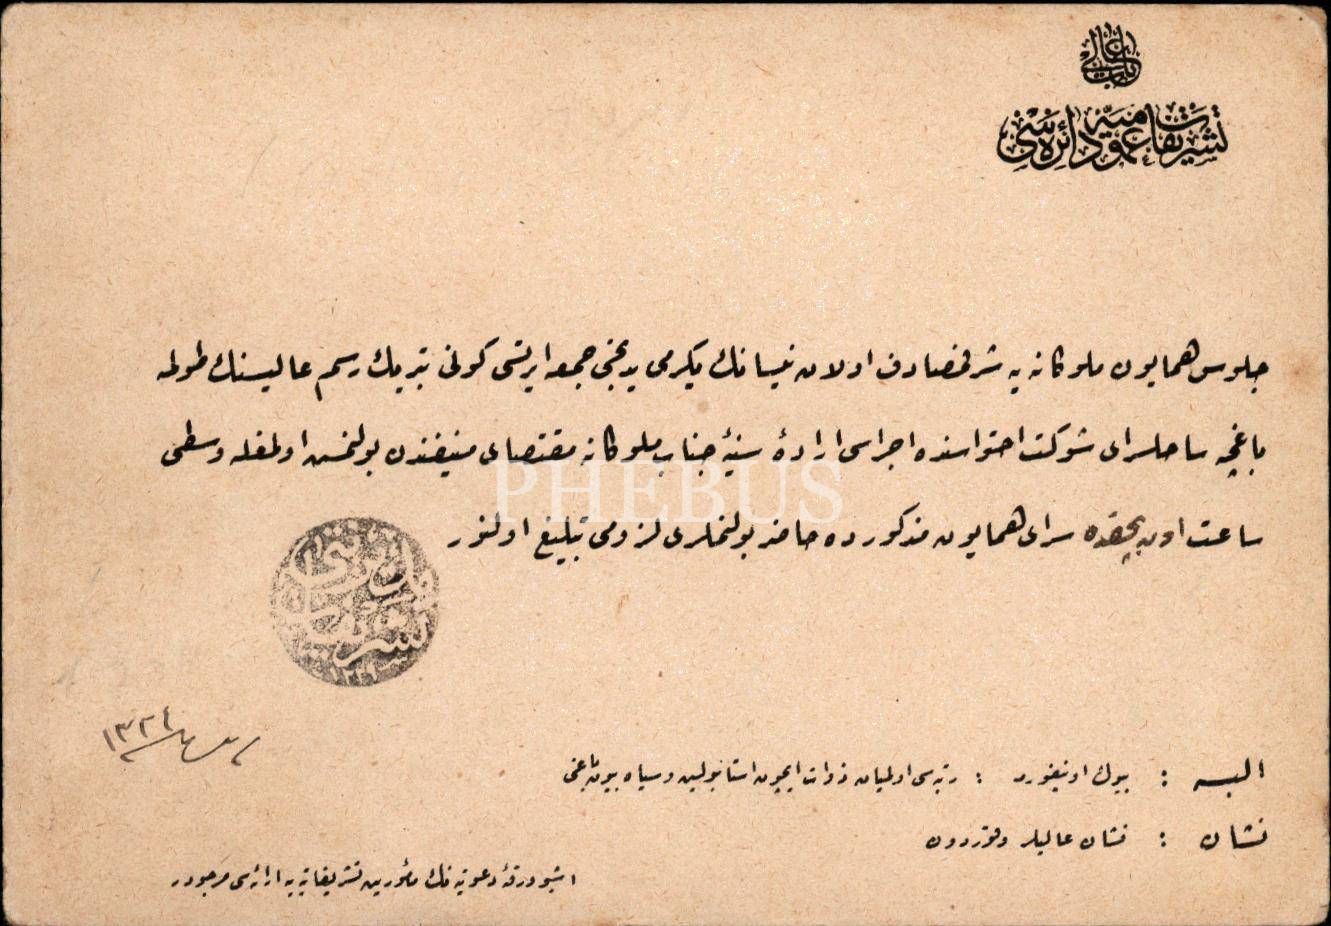 باب عالی
تشریفات عمومیه دائره سی
جلوس همایون ملوکانه یه شرفمصادف اولان نیسانك یکرمی یدنجی جمعه ایرتسی کونی تبریك رسم عالیسنك طولمه
باغچه ساحلسرای شوکت احتواسنده اجراسی ارادۀ سنیۀ جناب ملوکانه مقتضای منیفندن بولنمش اولمغله وسطی
ساعت اون بچقده سرای همایون مذکورده حاضر بولنملری لزومی تبلیغ اولنور
PHEBUS
تشریفات
١٣٢٤
البسه : بیوك اونیفورمه : رتبه سی اولمیان ذوات ایچون استانبولین و سیاه بیون باغی
نشان : نشان عالیلر و قوردون
اشبو ورقۀ دعوتیه نك مأمورین تشریفاتیه یه ارائه سی مرجودر